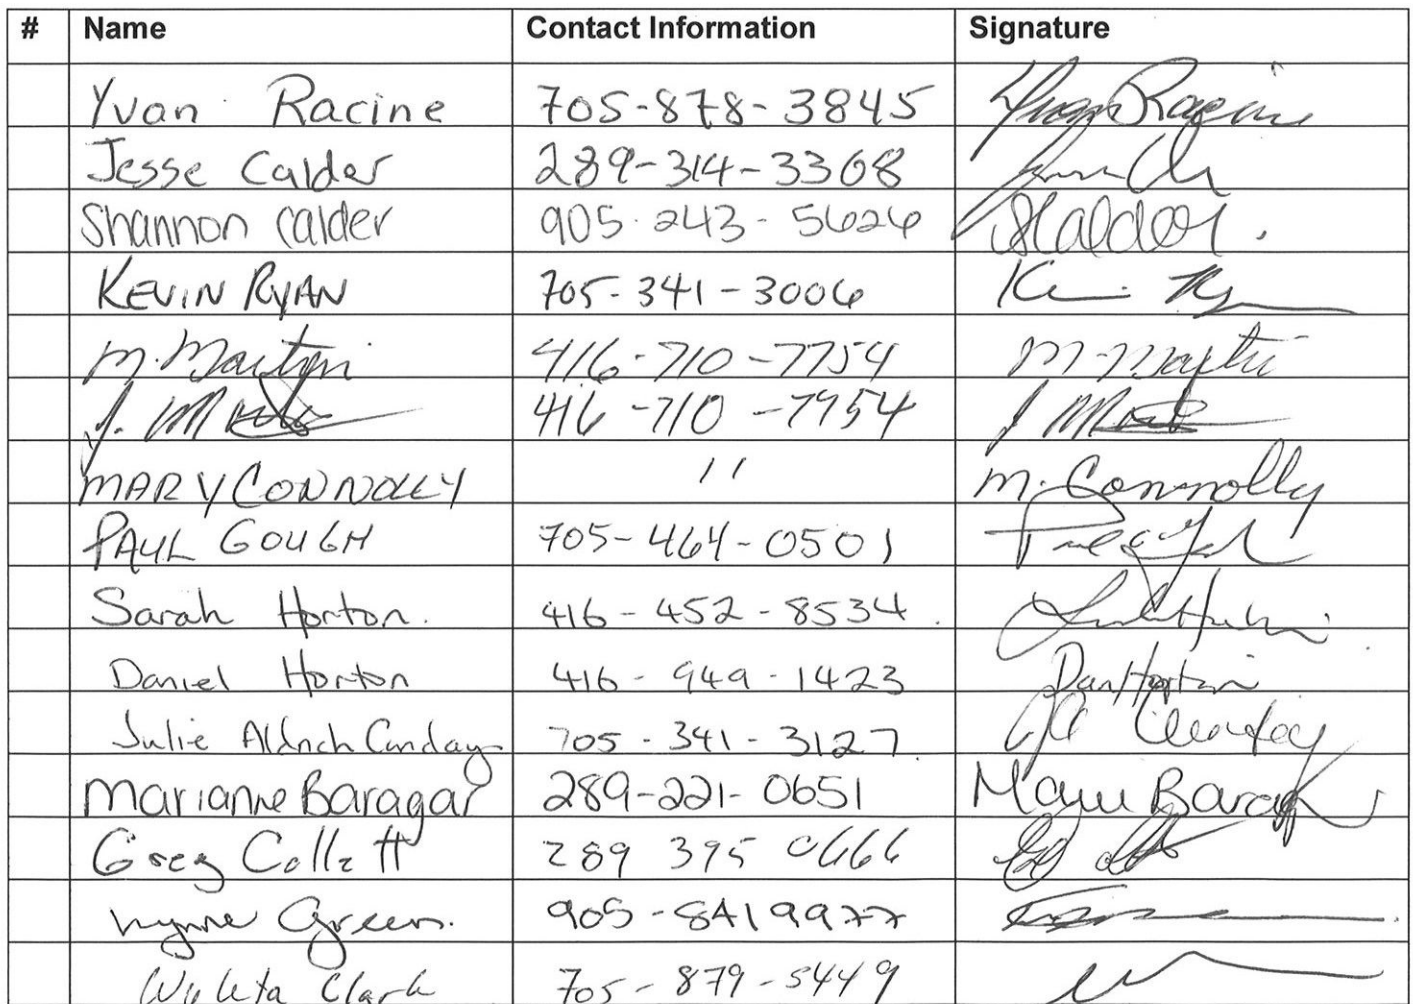 # Name Contact Information Signature
Yvan Racine 705-878-3845 Yvan Racine
Jesse Calder 289-314-3368
Shannon Calder 905-243-5626 SCalder.
KEVIN RYAN 705-341-3006
M. Martin 416-710-7754 M. Martin
J. 416-710-7954 J
MARY CONNOLLY 11 M. Connolly
PAUL GOUGH 705-464-0501
Sarah Horton. 416-452-8534.
Daniel Horton 416-949-1423 Dan Horton
Julie Aldrich Canday 705-341-3127
Marianne Baragar 289-221-0651
Greg Collett 289 395 0666
Lynne Green. 905-8419977
Clark 705-879-5449